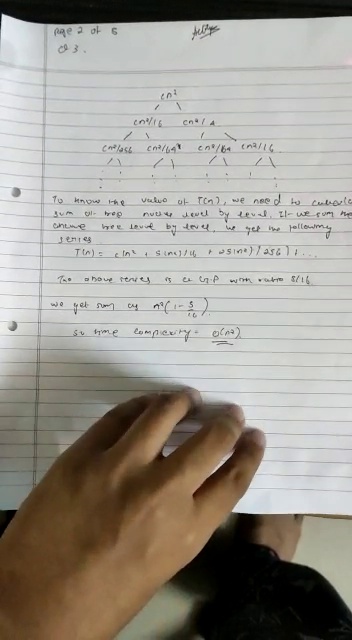 Page 2 of 5
Q 3.
cn²
cn²/16 cn²/4
cn²/256 cn²/64 cn²/64 cn²/16
To know the value of T(n), we need to calculate
sum of tree nodes level by level. If we sum the
above tree level by level, we get the following
series
T(n) = c(n² + 5(n²)/16 + 25(n²)/256) + ...
The above series is a G.P with ratio 5/16.
we get sum as n²(1 - 5/16)
so time complexity = O(n²)